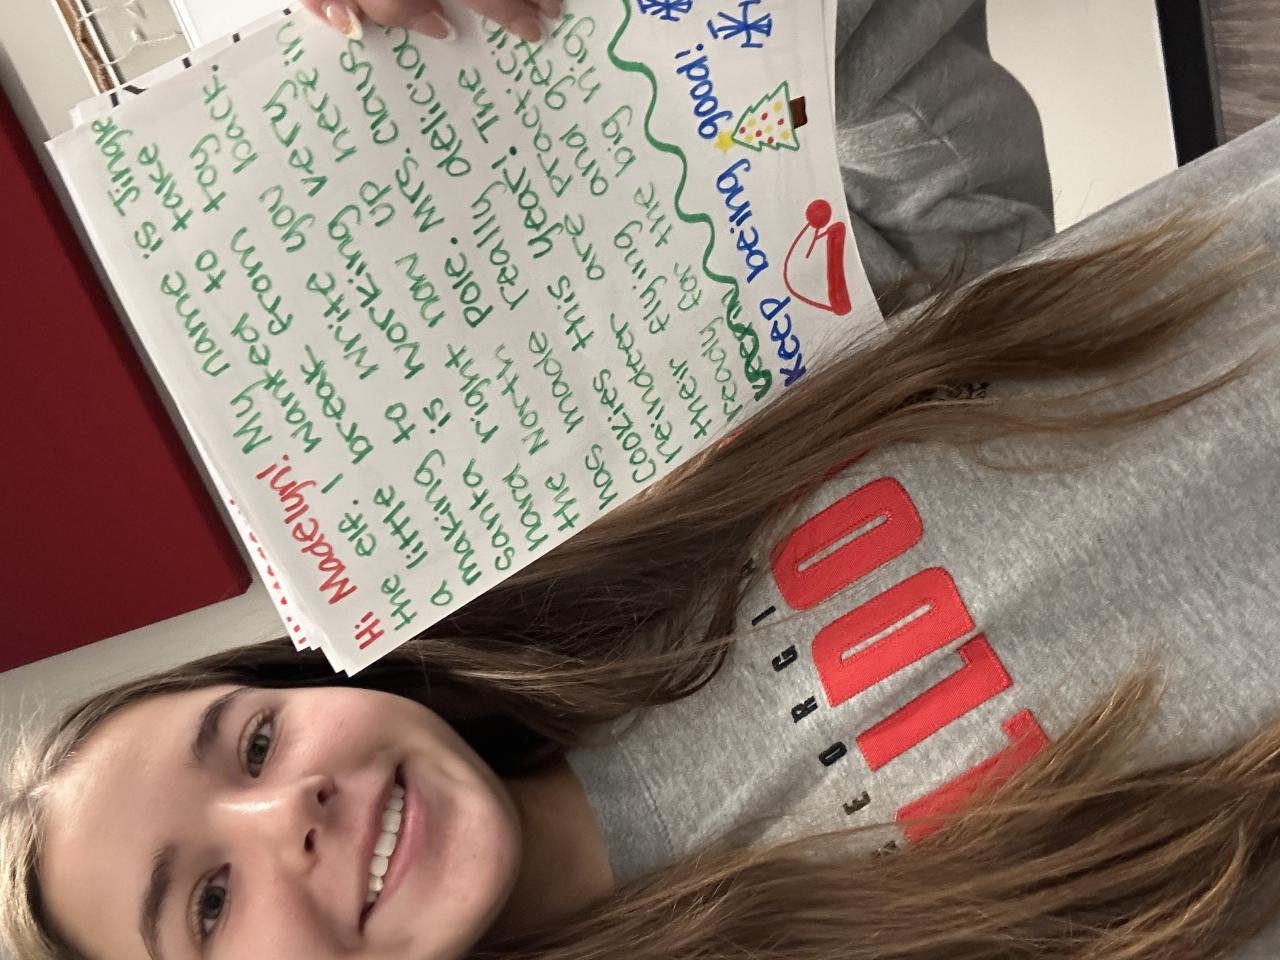 Hi Madelyn! My name is Jingle
the elf. I wanted to take
a little break from toy
making to write you back.
Santa is working very
hard right now up here in
the North Pole. Mrs. Claus
has made really delicious
cookies this year! The
reindeer are practicing
their flying and getting
ready for the big nig
keep being good!
GEORGI